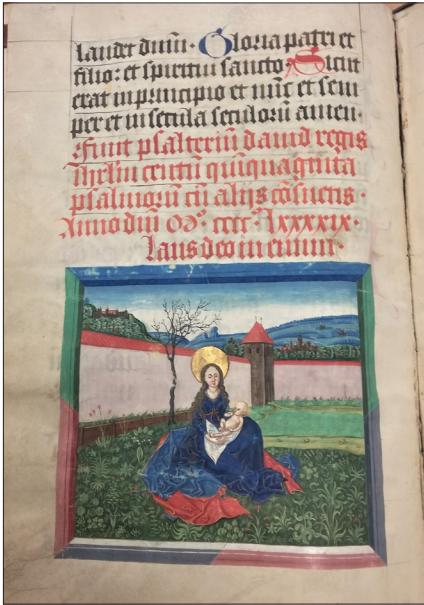 laudet dnm̄. Gloria patri et
filio: et spiritui sancto. Sicut
erat in principio et nūc et sem
per et in secula seculorū amen.
Finit psalteriū david regis
psalmorū cū alijs cōsuetis.
Anno dni Mº. cccc. lxxxxix.
laus deo in